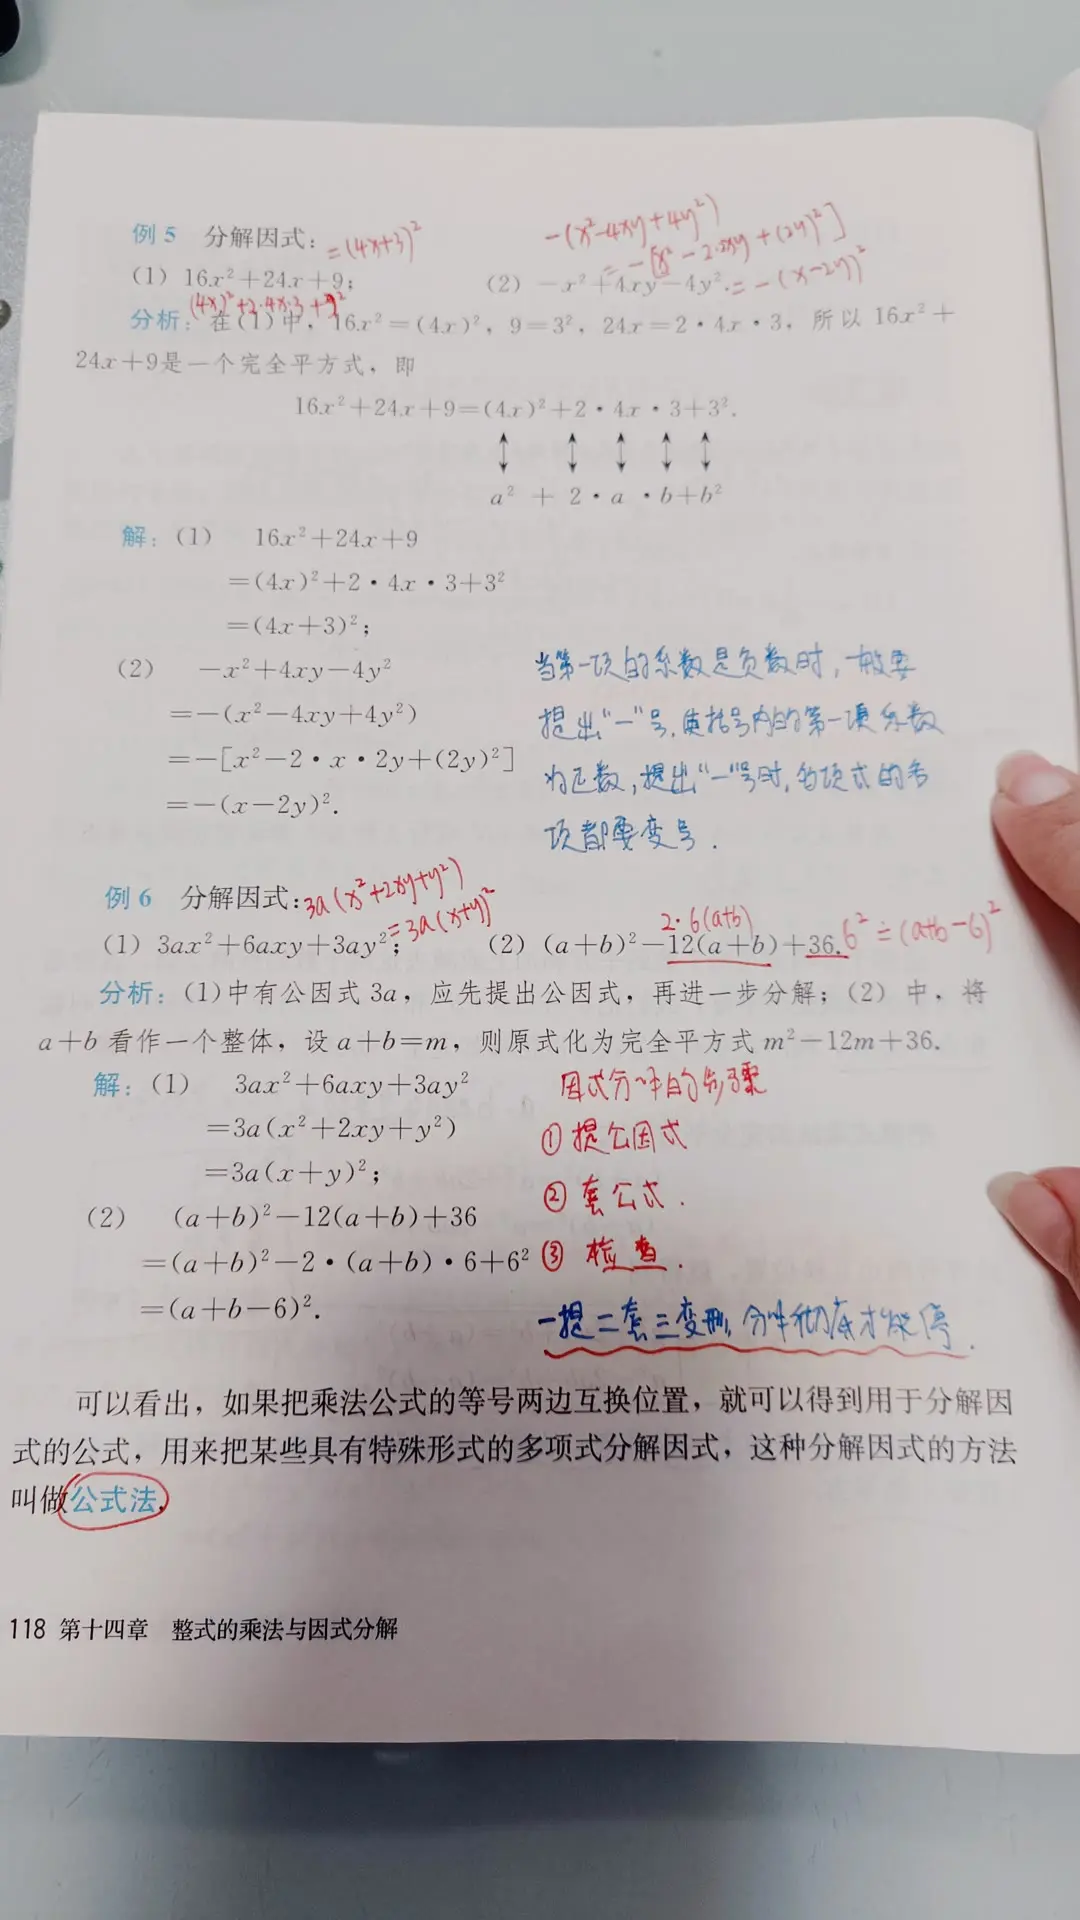 例5 分解因式: =(4x+3)² -(x²-4xy+4y²)
=-[x²-2·2xy+(2y)²]
(1) 16x²+24x+9; (2) -x²+4xy-4y². =-(x-2y)²
(4x)²+2·4x·3+3²
分析:在(1)中,16x²=(4x)²,9=3²,24x=2·4x·3,所以16x²+
24x+9是一个完全平方式,即
16x²+24x+9=(4x)²+2·4x·3+3².
a² + 2·a·b+b²
解:(1) 16x²+24x+9
=(4x)²+2·4x·3+3²
=(4x+3)²;
(2) -x²+4xy-4y² 当第一项的系数是负数时,一般要
=-(x²-4xy+4y²) 提出“-”号,使括号内的第一项系数
=-[x²-2·x·2y+(2y)²] 为正数,提出“-”号时,多项式的各
=-(x-2y)². 项都要变号.
例6 分解因式: 3a(x²+2xy+y²)
=3a(x+y)² 2·6(a+b)
(1) 3ax²+6axy+3ay²; (2) (a+b)²-12(a+b)+36. 6² =(a+b-6)²
分析:(1)中有公因式3a,应先提出公因式,再进一步分解;(2)中,将
a+b看作一个整体,设a+b=m,则原式化为完全平方式m²-12m+36.
解:(1) 3ax²+6axy+3ay² 因式分解的步骤
=3a(x²+2xy+y²) ①提公因式
=3a(x+y)²;
(2) (a+b)²-12(a+b)+36 ②套公式.
=(a+b)²-2·(a+b)·6+6² ③检查.
=(a+b-6)². 一提二套三变形,分解彻底才能停.
可以看出,如果把乘法公式的等号两边互换位置,就可以得到用于分解因
式的公式,用来把某些具有特殊形式的多项式分解因式,这种分解因式的方法
叫做公式法.
118 第十四章 整式的乘法与因式分解